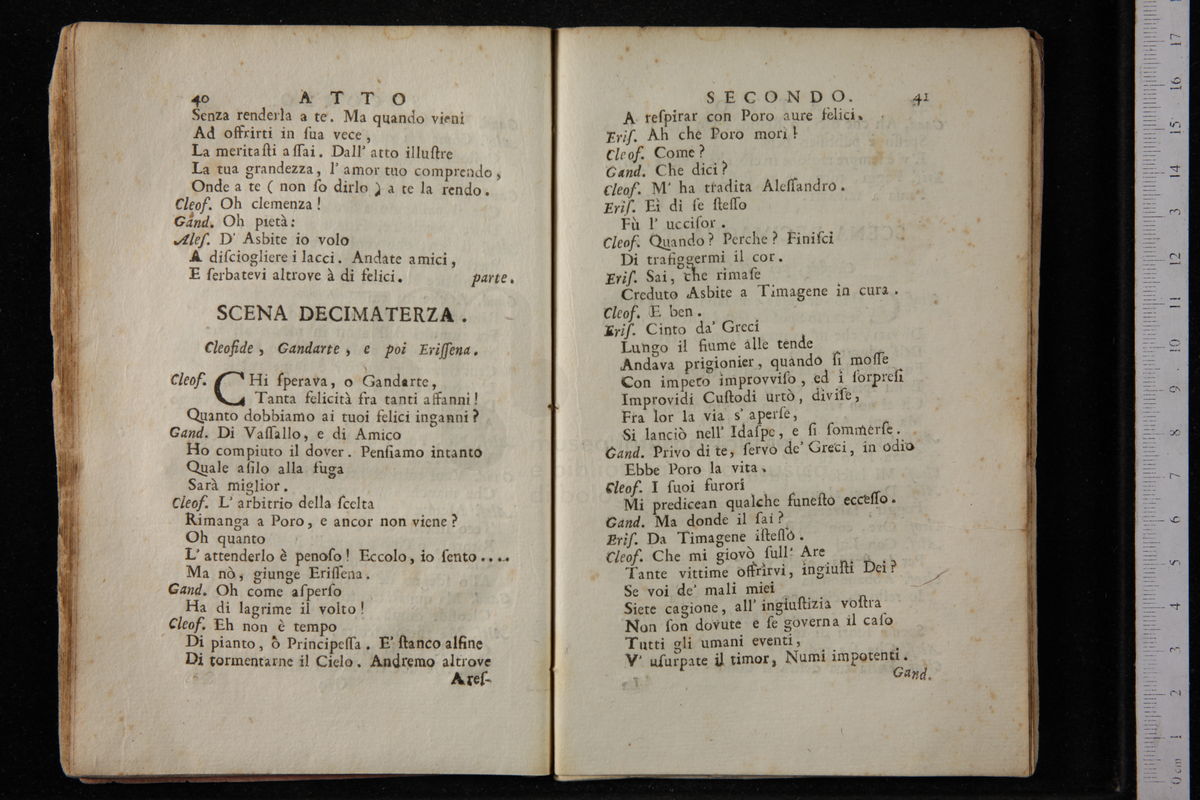 40 ATTO
Senza renderla a te. Ma quando vieni
Ad offrirti in ſua vece,
La meritaſti aſſai. Dall' atto illuſtre
La tua grandezza, l' amor tuo comprendo,
Onde a te ( non ſo dirlo ) a te la rendo.
Cleof. Oh clemenza!
Gand. Oh pietà:
Aleſ. D' Asbite io volo
A diſciogliere i lacci. Andate amici,
E ſerbatevi altrove à di felici. parte.
SCENA DECIMATERZA.
Cleofide, Gandarte, e poi Eriſſena.
Cleof. CHi ſperava, o Gandarte,
Tanta felicità fra tanti affanni!
Quanto dobbiamo ai tuoi felici inganni?
Gand. Di Vaſſallo, e di Amico
Ho compiuto il dover. Penſiamo intanto
Quale aſilo alla fuga
Sarà miglior.
Cleof. L' arbitrio della ſcelta
Rimanga a Poro, e ancor non viene?
Oh quanto
L' attenderlo è penoſo! Eccolo, io ſento....
Ma nò, giunge Eriſſena.
Gand. Oh come aſperſo
Ha di lagrime il volto!
Cleof. Eh non è tempo
Di pianto, ò Principeſſa. E' ſtanco alfine
Di tormentarne il Cielo. Andremo altrove
A reſ-
SECONDO. 41
A reſpirar con Poro aure felici.
Eriſ. Ah che Poro morì!
Cleof. Come?
Gand. Che dici?
Cleof. M' ha tradita Aleſſandro.
Eriſ. Ei di ſe ſteſſo
Fù l' ucciſor.
Cleof. Quando? Perche? Finiſci
Di trafiggermi il cor.
Eriſ. Sai, che rimaſe
Creduto Asbite a Timagene in cura.
Cleof. E ben.
Eriſ. Cinto da' Greci
Lungo il fiume alle tende
Andava prigionier, quando ſi moſſe
Con impeto improvviſo, ed i ſorpreſi
Improvidi Cuſtodi urtò, diviſe,
Fra lor la via s' aperſe,
Si lanciò nell' Idaſpe, e ſi ſommerſe.
Gand. Privo di te, ſervo de' Greci, in odio
Ebbe Poro la vita.
Cleof. I ſuoi furori
Mi predicean qualche funeſto ecceſſo.
Gand. Ma donde il ſai?
Eriſ. Da Timagene iſteſſo.
Cleof. Che mi giovò ſull' Are
Tante vittime offrirvi, ingiuſti Dei?
Se voi de' mali miei
Siete cagione, all' ingiuſtizia voſtra
Non ſon dovute e ſe governa il caſo
Tutti gli umani eventi,
V' uſurpate il timor, Numi impotenti.
Gand.